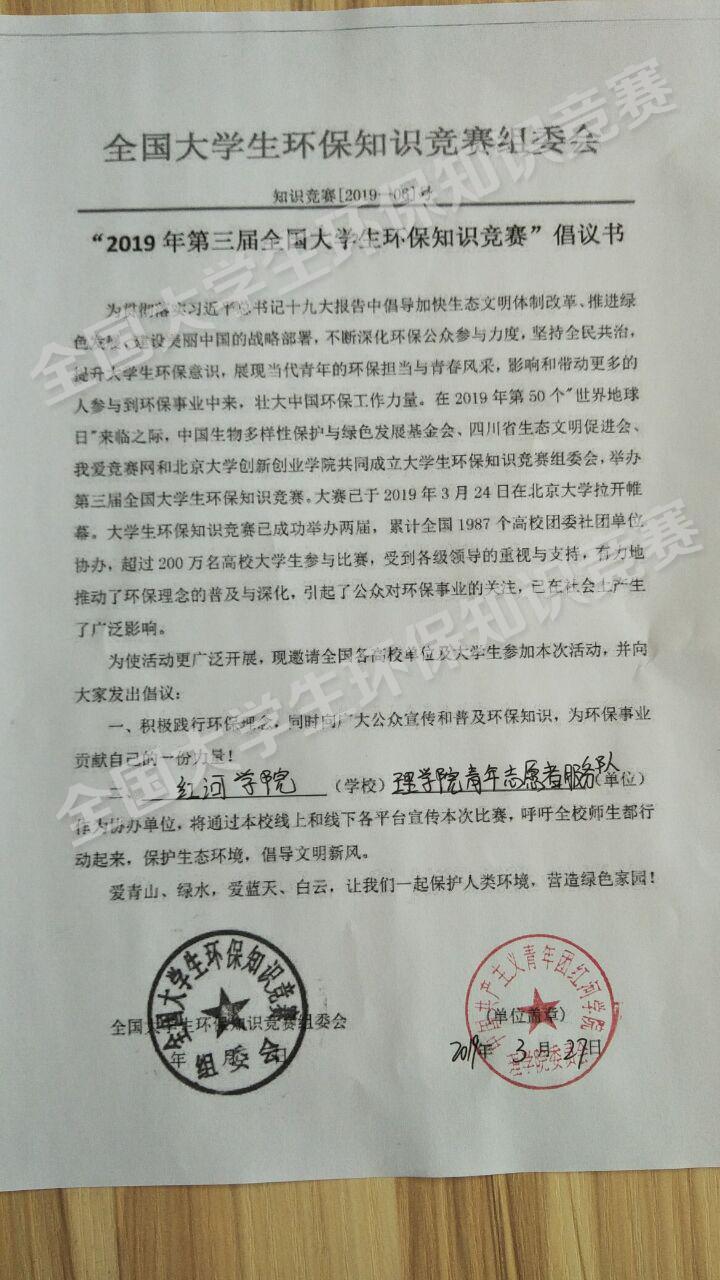 全国大学生环保知识竞赛组委会
知识竞赛[2019--06]号
“2019 年第三届全国大学生环保知识竞赛”倡议书
为贯彻落实习近平总书记十九大报告中倡导加快生态文明体制改革、推进绿
色发展、建设美丽中国的战略部署，不断深化环保公众参与力度，坚持全民共治，
提升大学生环保意识，展现当代青年的环保担当与青春风采，影响和带动更多的
人参与到环保事业中来，壮大中国环保工作力量。在 2019 年第 50 个"世界地球
日"来临之际，中国生物多样性保护与绿色发展基金会、四川省生态文明促进会、
我爱竞赛网和北京大学创新创业学院共同成立大学生环保知识竞赛组委会，举办
第三届全国大学生环保知识竞赛。大赛已于 2019 年 3 月 24 日在北京大学拉开帷
幕。大学生环保知识竞赛已成功举办两届，累计全国 1987 个高校团委社团单位
协办，超过 200 万名高校大学生参与比赛，受到各级领导的重视与支持，有力地
推动了环保理念的普及与深化，引起了公众对环保事业的关注，已在社会上产生
了广泛影响。
为使活动更广泛开展，现邀请全国各高校单位及大学生参加本次活动，并向
大家发出倡议：
一、积极践行环保理念，同时向广大公众宣传和普及环保知识，为环保事业
贡献自己的一份力量！
二、红河学院（学校）理学院青年志愿者服务队（单位）
作为协办单位，将通过本校线上和线下各平台宣传本次比赛，呼吁全校师生都行
动起来，保护生态环境，倡导文明新风。
爱青山、绿水，爱蓝天、白云，让我们一起保护人类环境，营造绿色家园！
全国大学生环保知识竞赛组委会
年 月 日
全国大学生环保知识竞赛
组委会
（单位盖章）
2019年 3 月 27日
中国共产主义青年团红河学院
理学院委员会
全国大学生环保知识竞赛
全国大学生环保知识竞赛